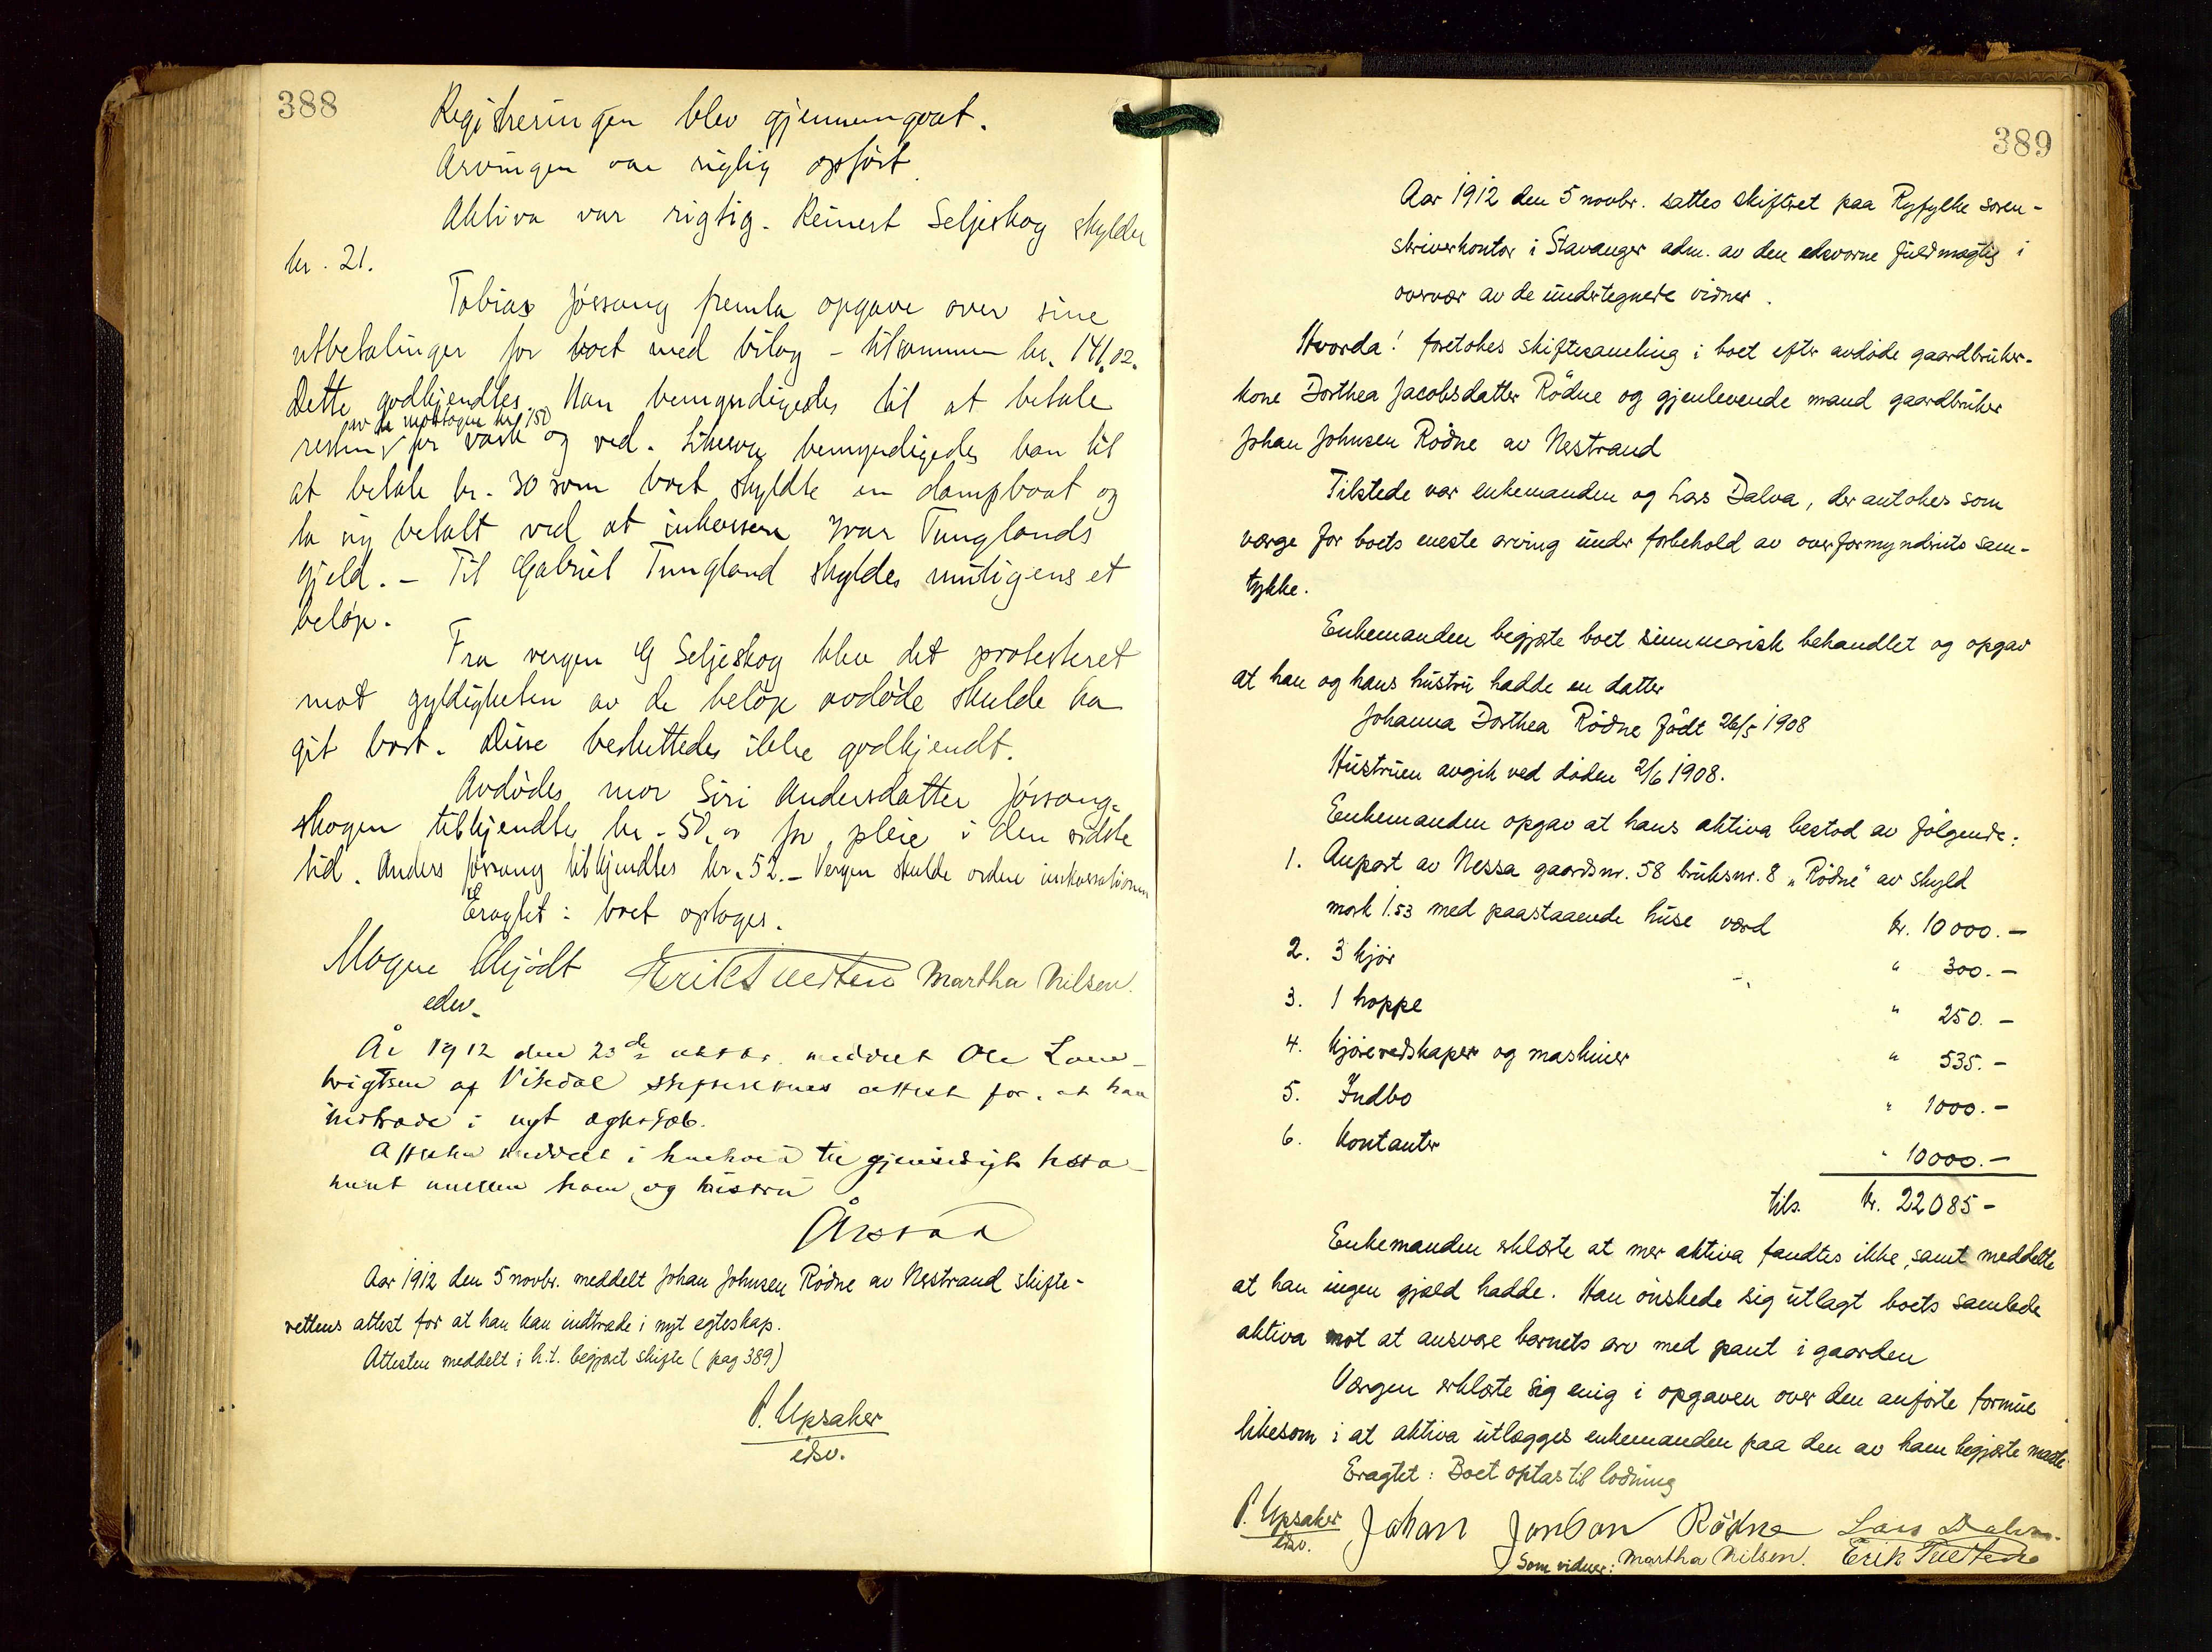 388
Registreringen blev gjennemgaat.
Arvingen var rigtig opført.
Aktiva var rigtig. Reinert Seljeskog skylder
kr. 21.
Tobias Jøssang fremla opgave over sine
utbetalinger for boet med bilag – tilsammen kr. 141.02.
Dette godkjendtes. Han bemyndigedes til at betale
av de mottagne kr. 150
resten for vask og ved. Likesaa bemyndigedes han til
at betale kr. 30 som boet skyldte en dampbaat og
ta sig betalt ved at inkassere Ivar Tunglands
gjeld. – Til Gabriel Tungland skyldes muligens et
beløp.
Fra vergen G Seljeskog blev det protesteret
mot gyldigheten av de beløp avdøde skulde ha
git bort. Disse besluttedes ikke godkjendt.
Avdødes mor Siri Andersdatter Jøssang-
skogen tilkjendtes kr. 50,00 for pleie i den sidste
tid. Anders Jøssang tilkjendtes kr. 52. – Vergen skulde ordne inkassationen
Eragtet: boet optages.
Mogne Skjödt Erik Tveden Martha Nilsen.
edsv.
År 1912 den 23de oktbr. meddelt Ole
af Vikedal skifterettens attest for, at han
indtræde i nyt ægteskab.
Attesten meddelt i henhold til gjensidigt testa-
ment mellem ham og hustru
Årstad
Aar 1912 den 5 novbr. meddelt Johan Johnsen Rødne av Nestrand skifte-
rettens attest for at han kan indtræde i nyt egteskap.
Attesten meddelt i h.t. begjært skifte (pag 389)
P. Upsaker
edsv.
389
Aar 1912 den 5 novbr. sattes skifteret paa Ryfylke soren-
skriverkontor i Stavanger adm. av den edsvorne fuldmægtig i
overvær av de undertegnede vidner.
Hvorda! foretokes skiftesamling i boet efter avdøde gaardbruker-
kone Dorthea Jacobsdatter Rødne og gjenlevende mand gaardbruker
Johan Johnsen Rødne av Nestrand
Tilstede var enkemanden og Lars Dalva, der antokes som
værge for boets eneste arving under forbehold av overformynderiets sam-
tykke.
Enkemanden begjærte boet summarisk behandlet og opgav
at han og hans hustru hadde en datter
Johanna Dorthea Rødne født 26/5 1908
Hustruen avgik ved døden 2/6 1908.
Enkemanden opgav at hans aktiva bestod av følgende:
1. Anpart av Nessa gaardsnr. 58 bruksnr. 8 "Rødne" av skyld
mark 1.53 med paastaaende huse værd kr. 10000.–
2. 3 kjør " 300.–
3. 1 hoppe " 250.–
4. Kjøreredskaper og maskiner " 535.–
5. Indbo " 1000.–
6. Kontanter " 10000.–
tils. kr. 22085–
Enkemanden erklærte at mer aktiva fandtes ikke, samt meddelte
at han ingen gjæld hadde. Han ønskede sig utlagt boets samlede
aktiva mot at ansvare barnets arv med pant i gaarden
Værgen erklærte sig enig i opgaven over den anførte formue
likesom i at aktiva utlægges enkemanden paa den av ham begjærte maate
Eragtet: Boet optas til lodning
P. Upsaker Johan Jonson Rödne Lars Dalva.
edsv.
Som vidner: Martha Nilsen. Erik Tveden